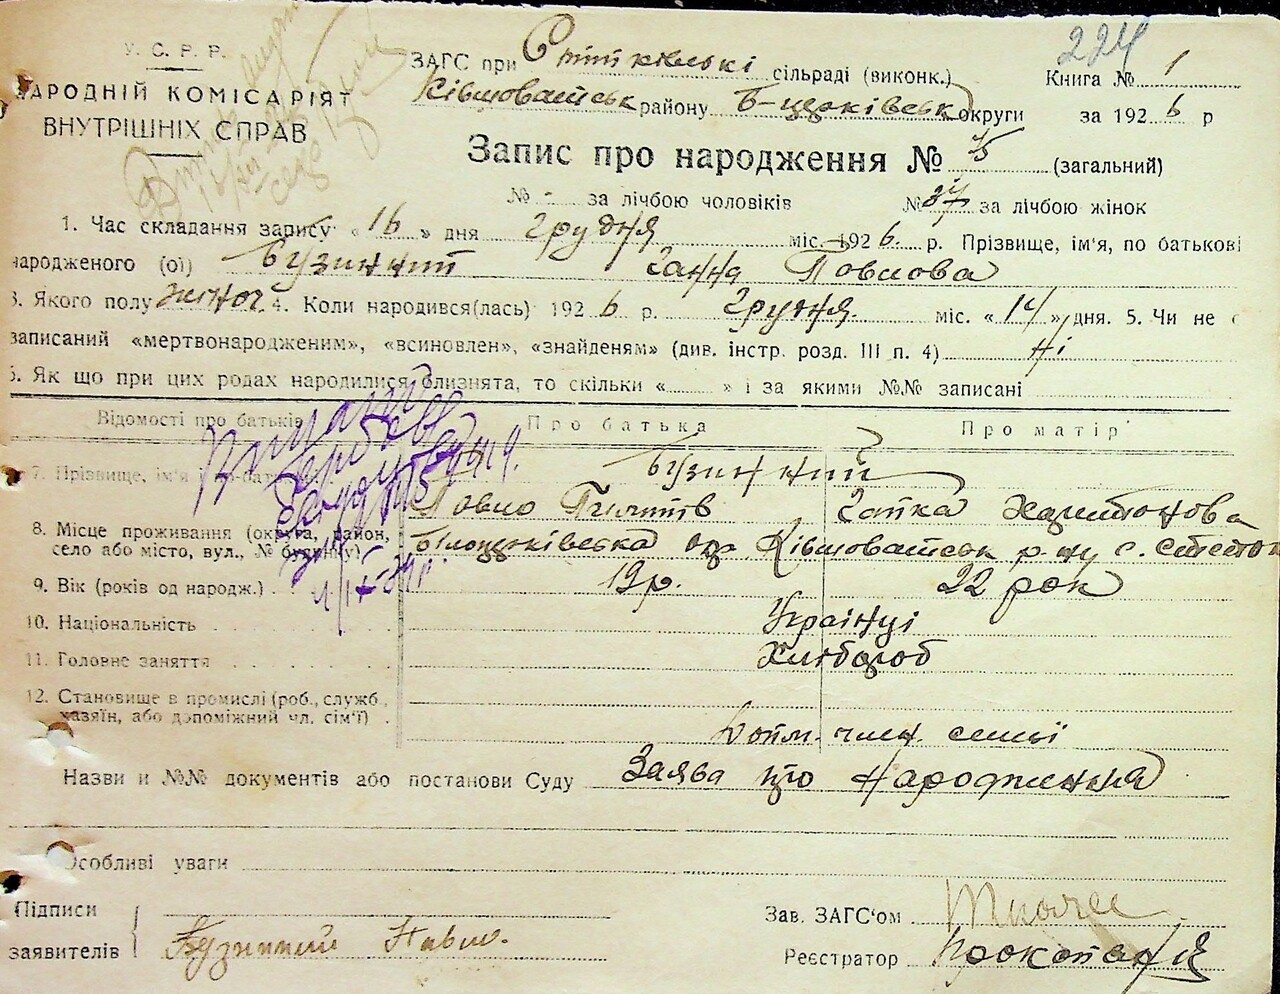 У. С. Р. Р.
НАРОДНІЙ КОМІСАРІЯТ
ВНУТРІШНІХ СПРАВ
224
ЗАГС при сільраді (виконк.) Книга № 1
Ківшоватськ району Б-церківськ округи за 1926 р
Запис про народження № 75 (загальний)
№ - за лічбою чоловіків № 37 за лічбою жінок
1. Час складання запису «16» дня грудня міс. 1926 р. Прізвище, ім'я, по батькові
народженого (ої) Бузинний Ганна Повлова
3. Якого полу жіноч. 4. Коли народився(лась) 1926 р. Грудня міс. «14» дня. 5. Чи не
записаний «мертвонародженим», «всиновлен», «знайденям» (див. інстр. розд. III п. 4) Ні
6. Як що при цих родах народилися близнята, то скільки « » і за якими №№ записані
Відомості про батьків Про батька Про матір
7. Прізвище, ім'я по-батьк. Бузинний
Повло Гатка Харитонова
8. Місце проживання (округа, район, Білоцерківська окр Ківшоватськ р-ну с.
село або місто, вул., № будин(у)
9. Вік (років од народж.) 19 р. 22 рок
10. Національність Українці
11. Головне заняття Хлібороб
12. Становище в промислі (роб., служб.,
хазяїн, або допоміжний чл. сім'ї) Допм. член. семьї
Назви и №№ документів або постанови Суду Заява про Народження
Особливі уваги
Підписи Зав. ЗАГС'ом
заявителів Бузинний Павло. Реєстратор